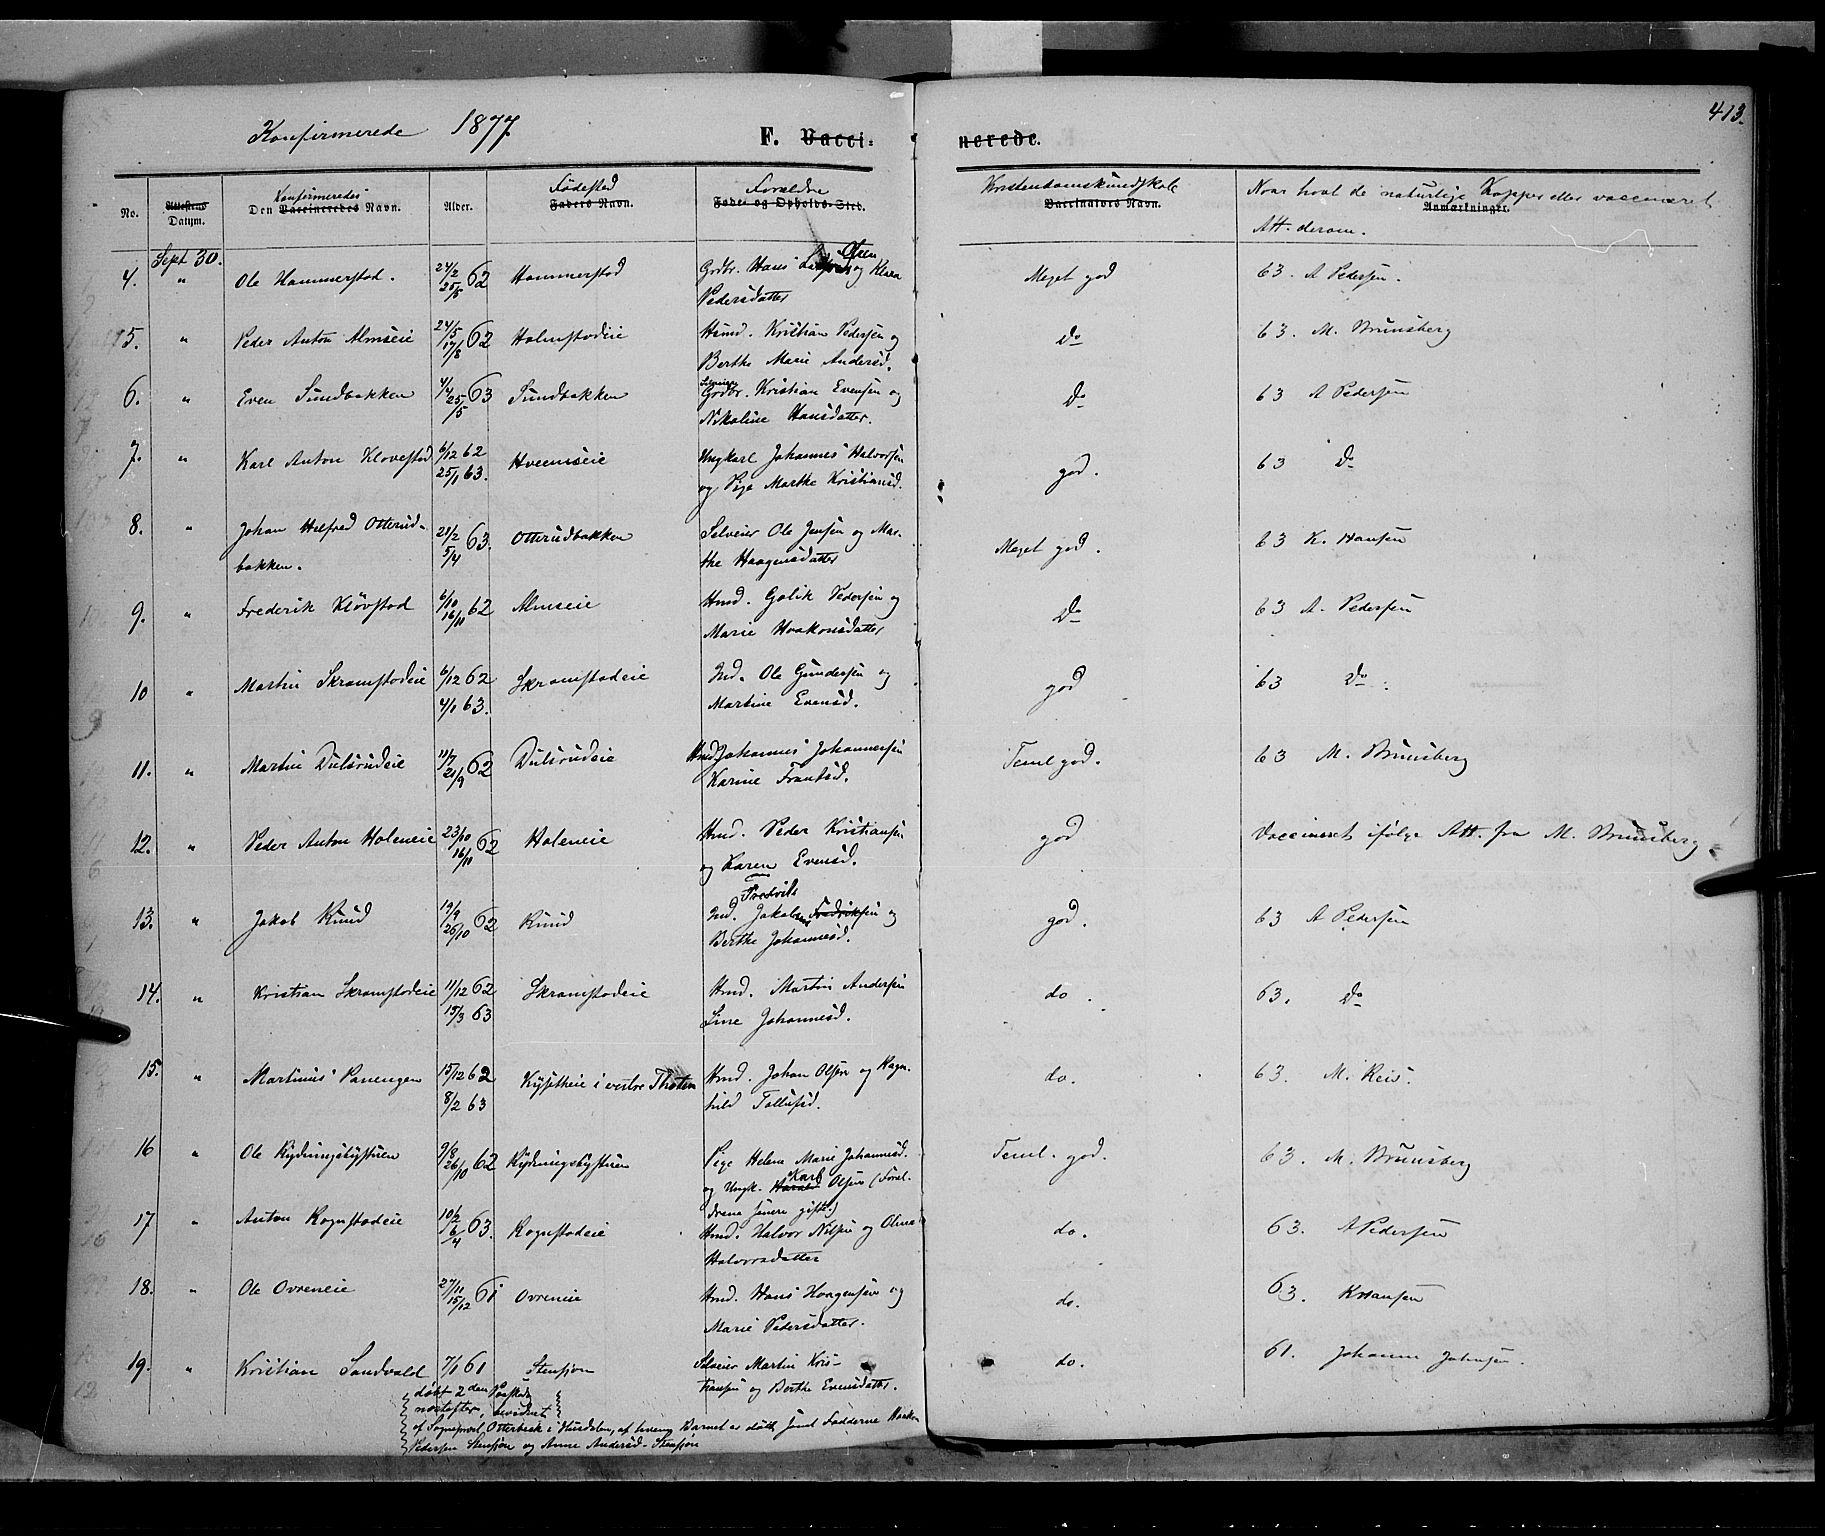 413.
Konfirmerede 1877 F. Vacci-nerede.
No. Attestens Datum. Konfirmeredes Den Vaccineredes Navn. Alder. Fødested Faders Navn. Forældre Fader og Opholds-Sted. Kristendomskundskab Vaccinators Navn. Naar havt de naturlige Kopper eller vaccineret Anmærkninger.
Att. derom.
Sept 30.
4. " Ole Hammerstad. 24/2 25/5 62 Hammerstad Grdbr. Hans Olsen og Klara Meget god 63. A Pedersen.
Pedersdatter
5. " Peder Anton Almseie 24/5 17/8 62 Holmstadeie Hsmd. Kristian Pedersen og Do 63. M. Brunsberg
Berthe Marie Andersd.
6. " Even Sundbakken 4/4 25/5 63 Sundbakken Selveier Grdbr. Kristian Evensen og Do 63 A Pedersen
Nikoline Hansdatter.
7. " Karl Anton Klovestad 6/12 62 Hveemseie Ungkarl Johannes Halvorsen god. 63 Do
25/1 63. og Pige Marthe Kristiansd.
8. " Johan Helfred Otterud- 21/2 5/4 63. Otterudbakken Selveier Ole Jensen og Mar- Meget god. 63 K. Hansen
bakken. the Haagensdatter
9. " Frederik Kløvstad 6/10 16/11 62 Almseie Hmd. Golik Pedersen og Do 63 A. Pedersen
Marie Haakonsdatter
10 " Martin Skramstadeie 6/12 62 Skramstadeie Ind. Ole Gundersen og god 63 Do
4/1 63. Martine Evensd.
11. " Martin Dulsrudeie 11/7 21/9 62 Dulsrudeie Hmd Johannes Johannesen Teml god. 63 M. Brunsberg
Karine Frantsd.
12. " Peder Anton Holeneie 23/10 16/11 62 Holeneie Hmd. Peder Kristiansen god Vaccineret ifølge Att. fra M. Brunsberg.
og Karen Evensd.
13. " Jakob Ruud 19/9 26/10 62 Ruud Ind. Jakobsen Fredriksen og god. 63 A Pedersen
Berthe Johannesd.
14. " Kristian Skramstadeie 11/12 62 Skramstadeie Hmd. Martin Andersen do. 63. Do
15/3 63 Line Johannesd.
15. " Martinus Panengen 15/12 62 i vestre Thoten Hmd. Johan Olsen og Ragn- do. 63. M. Reis.
8/2 63 hild Tollefsd.
16 " Ole 9/8 26/10 62 Pige Helene Marie Johannesd. Teml. god. 63. M. Brunsberg
og Ungk. Karl Olsen (Foræl-
drene senere gifte)
17 " Anton Rognstadeie 10/2 6/4 63. Rognstadeie Hmd. Halvor Nilsen og Oline do. 63. A Pedersen
Halvorsdatter
18. " Ole Ovreneie 27/11 15/12 61 Ovreneie Hmd. Hans Haagensen og do. 63. K Hansen
Marie Pedersdatter.
19. " Kristian Sandvold 7/1 61 Stensjøn Selveier Martin Kris- do. 61. Johanne Johnsen.
tiansen og Berthe Evensdatter.
døbt 2den Paaskedag
næstefter, bevidnet
af Sogneprest Otterbeck i Hurdalen, af hvem Barnet er døbt, samt Fadderne Haakon
Pedersen Stensjøn og Anne Andersd. Stensjøn